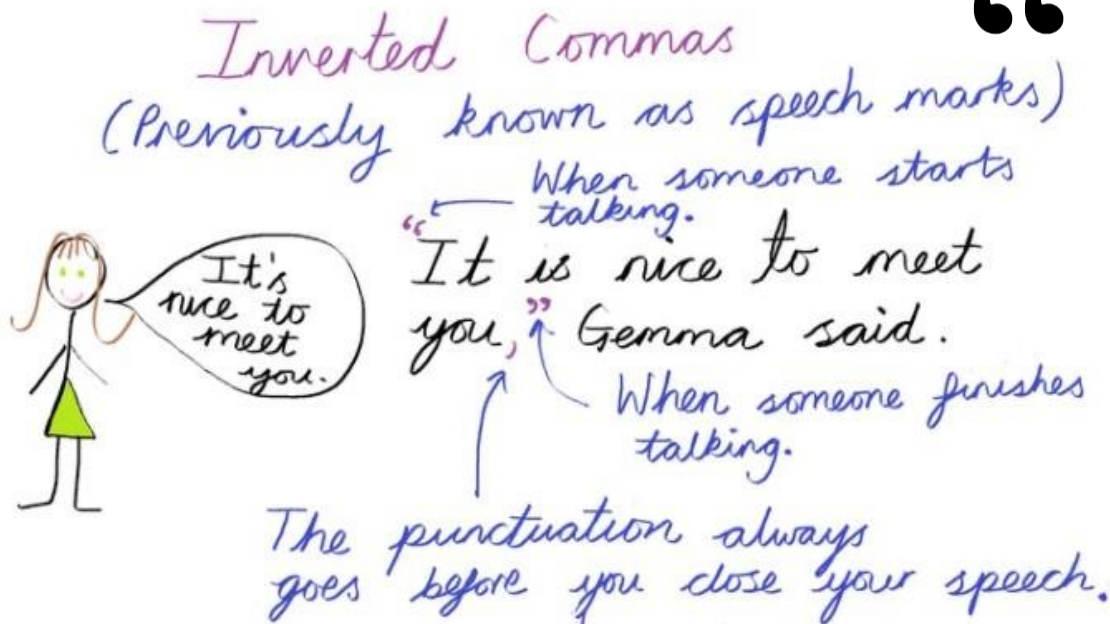 Inverted Commas
(Previously known as speech marks)
When someone starts
talking.
“It is nice to meet
you,” Gemma said.
It's
nice to
meet
you.
When someone finishes
talking.
The punctuation always
goes before you close your speech.